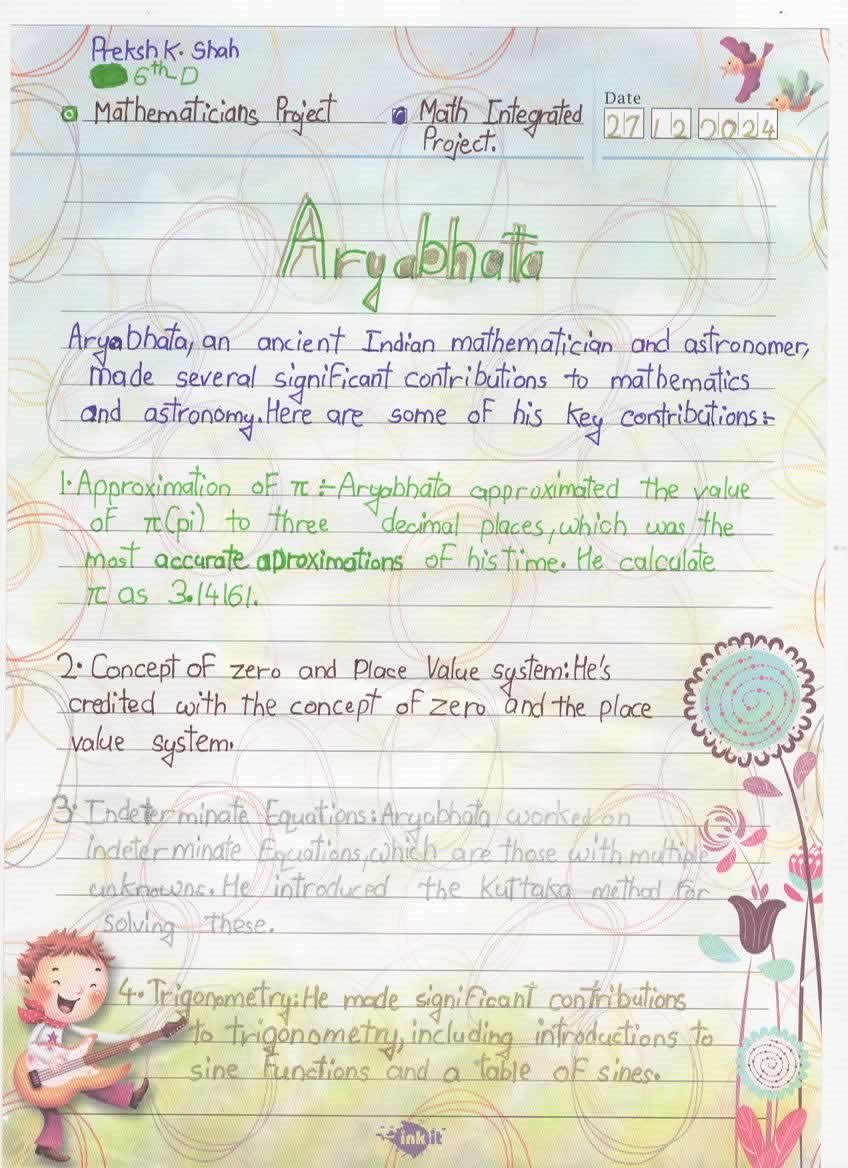 Preksh K. Shah
6th D
Mathematicians Project
Math Integrated
Project.
Date
27 12 2024
Aryabhata
Aryabhata, an ancient Indian mathematician and astronomer,
made several significant contributions to mathematics
and astronomy. Here are some of his key contributions:-
1. Approximation of π :- Aryabhata approximated the value
of π(pi) to three decimal places, which was the
most accurate aproximations of his time. He calculate
π as 3.14161.
2. Concept of zero and Place Value system: He's
credited with the concept of zero and the place
value system.
3. Indeterminate Equations: Aryabhata worked on
indeterminate Equations, which are those with multiple
unknowns. He introduced the Kuttaka method for
solving these.
4. Trigonometry: He made significant contributions
to trigonometry, including introductions to
sine functions and a table of sines.
ink it